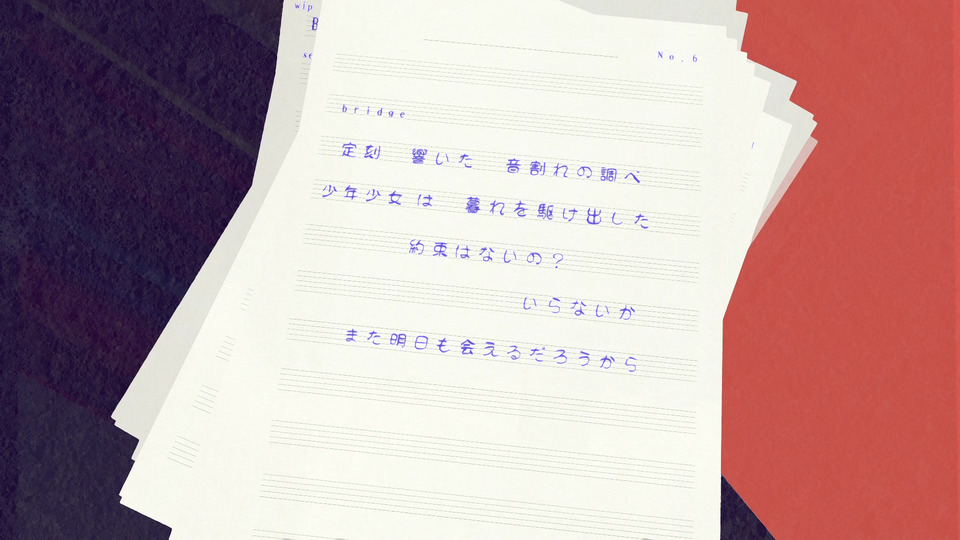 wip
se
No.6
bridge
定刻 響いた 音割れの調べ
少年少女は 暮れを駆け出した
約束はないの?
いらないか
また明日も会えるだろうから